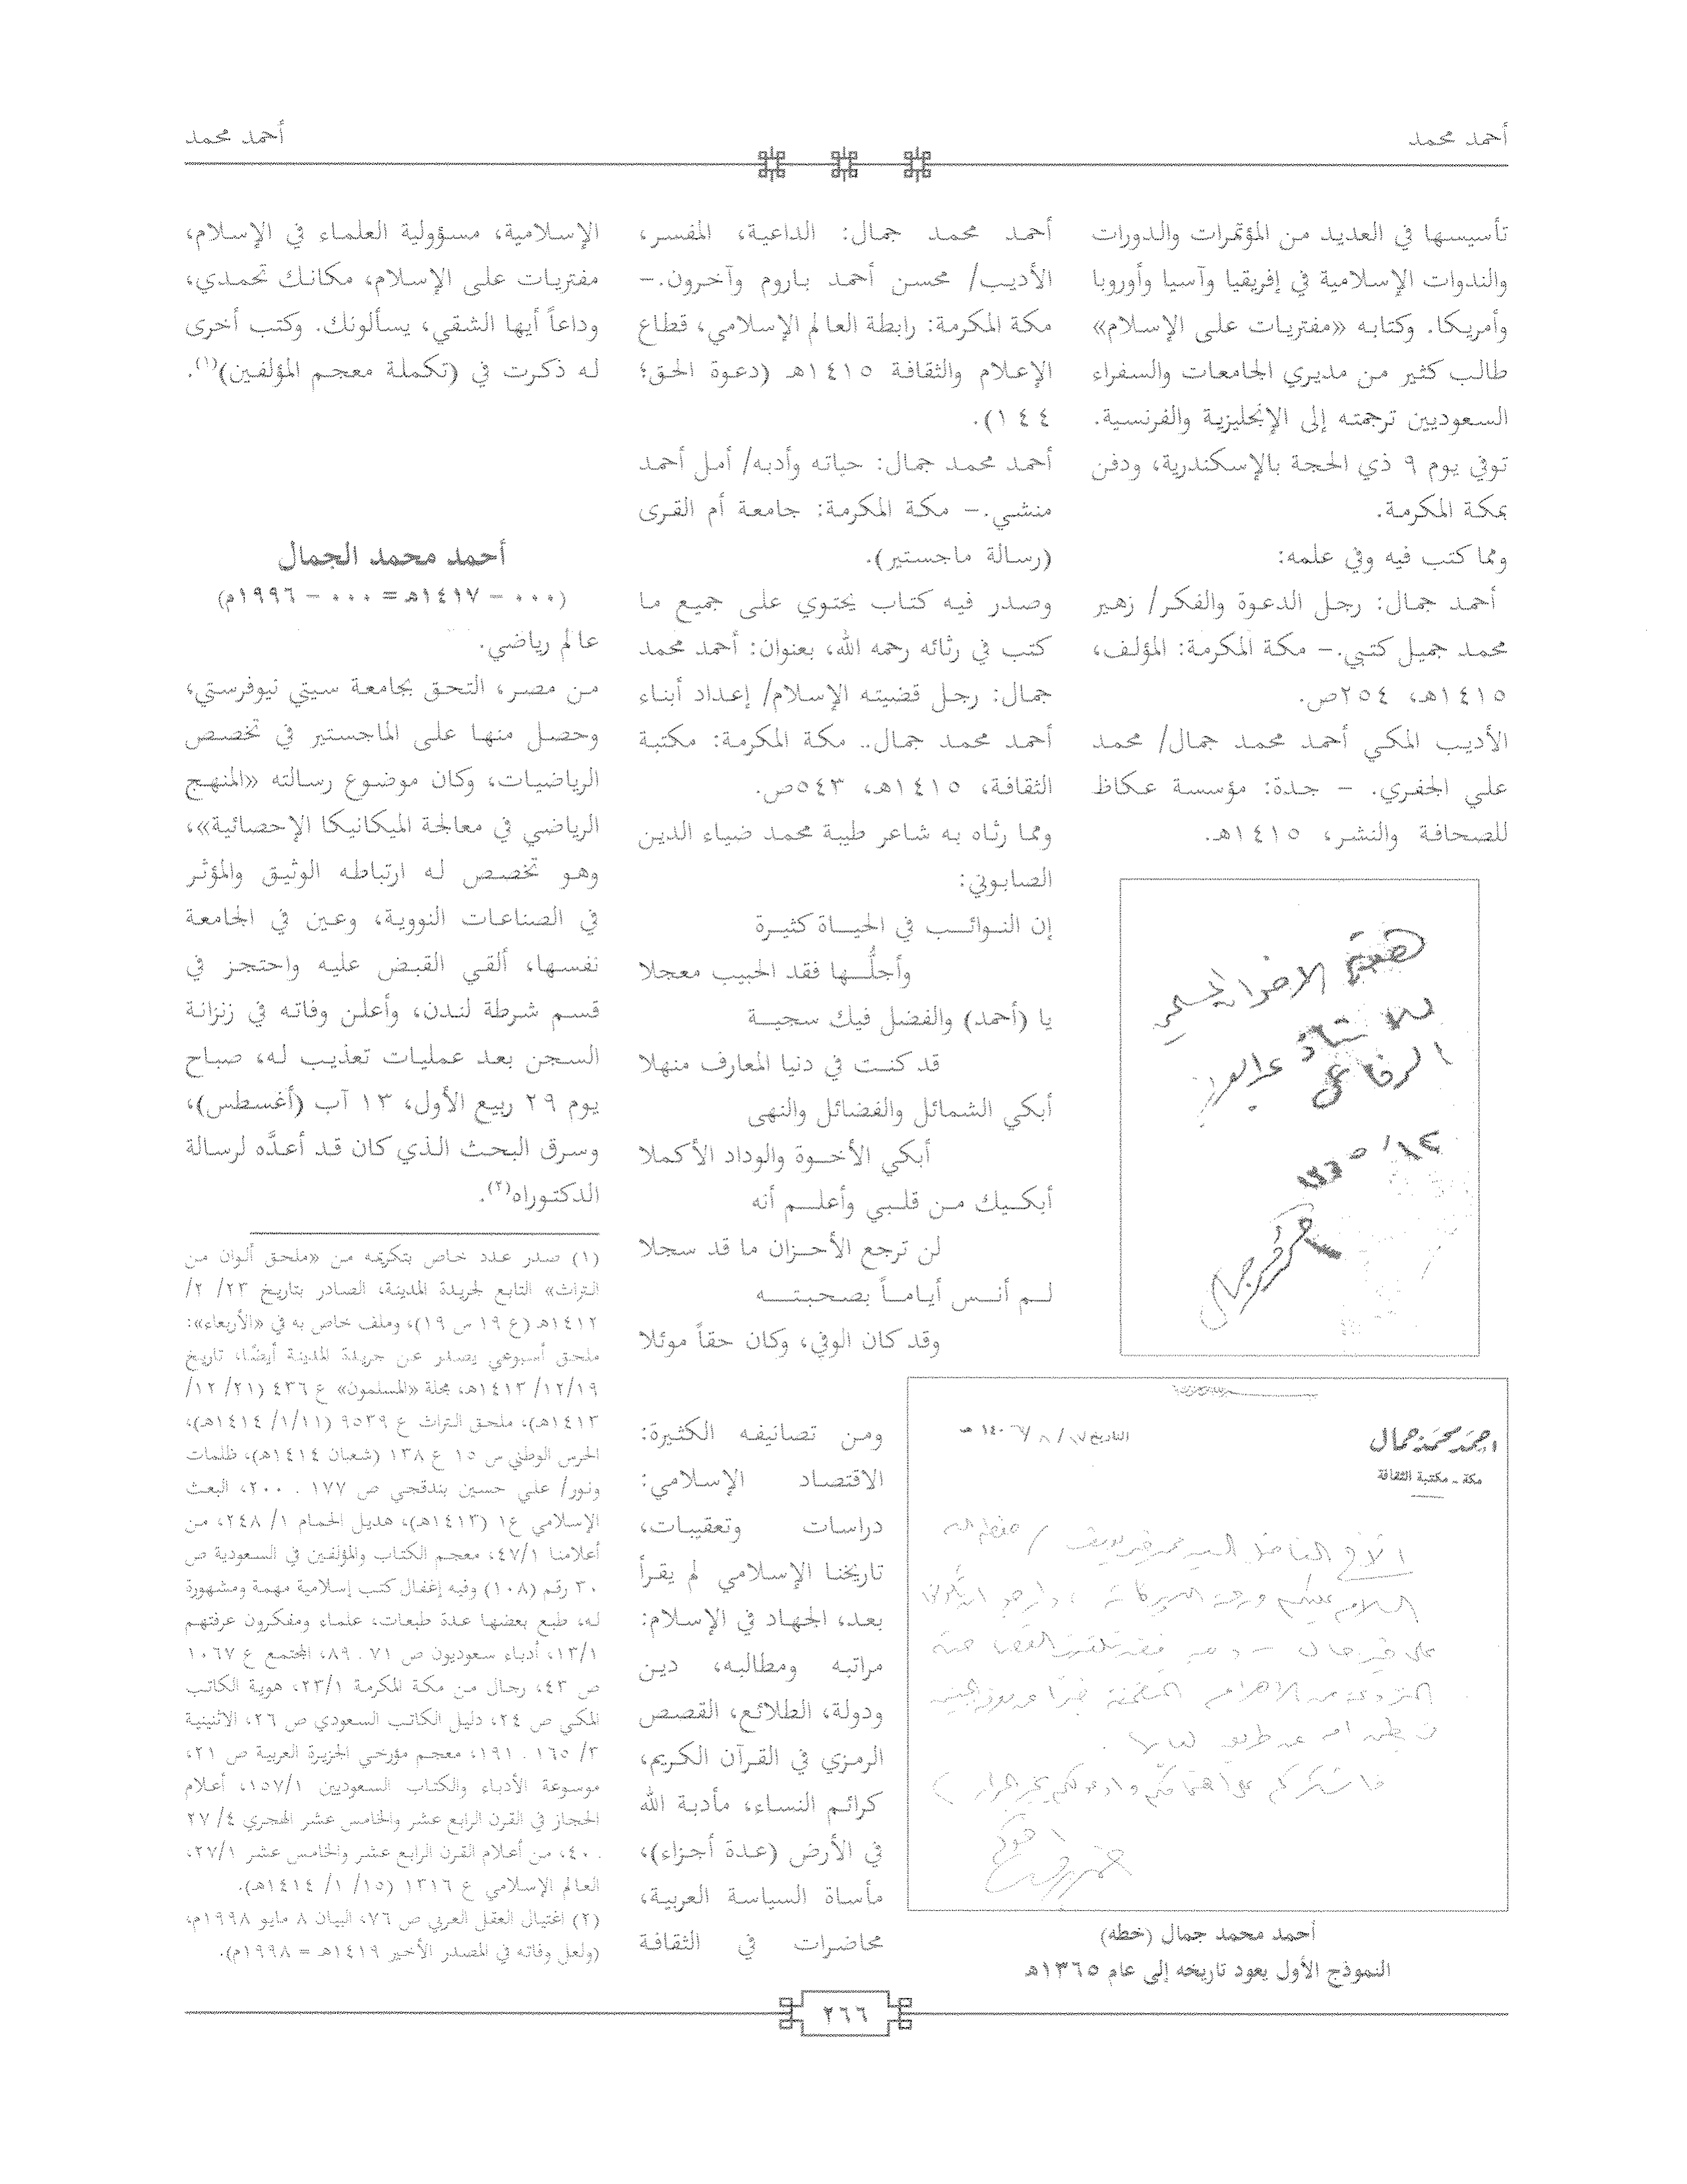 أحمد محمد
أحمد محمد
تأسيسها في العديد من المؤتمرات والدورات
والندوات الإسلامية في إفريقيا وآسيا وأوروبا
وأمريكا. وكتابه «مفتريات على الإسلام»
طالب كثير من مديري الجامعات والسفراء
السعوديين ترجمته إلى الإنجليزية والفرنسية.
توفي يوم ٩ ذي الحجة بالإسكندرية، ودفن
بمكة المكرمة.
ومما كتب فيه وفي علمه:
أحمد جمال: رجل الدعوة والفكر/ زهير
محمد جميل كتبي.- مكة المكرمة: المؤلف،
١٤١٥هـ، ٢٥٤ص.
الأديب المكي أحمد محمد جمال/ محمد
علي الجفري. - جدة: مؤسسة عكاظ
للصحافة والنشر، ١٤١٥هـ.
احمد محمد جمال
مكة - مكتبة الثقافة
التاريخ
السلام عليكم ورحمة
أحمد محمد جمال (خطه)
النموذج الأول يعود تاريخه إلى عام ١٣٦٥هـ
أحمد محمد جمال: الداعية، المفسر،
الأديب/ محسن أحمد باروم وآخرون.-
مكة المكرمة: رابطة العالم الإسلامي، قطاع
الإعلام والثقافة ١٤١٥هـ (دعوة الحق؛
١٤٤).
أحمد محمد جمال: حياته وأدبه/ أمل أحمد
منشي.- مكة المكرمة: جامعة أم القرى
(رسالة ماجستير).
وصدر فيه كتاب يحتوي على جميع ما
كتب في رثائه رحمه الله، بعنوان: أحمد محمد
جمال: رجل قضيته الإسلام/ إعداد أبناء
أحمد محمد جمال.. مكة المكرمة: مكتبة
الثقافة، ١٤١٥هـ، ٥٤٣ص.
ومما رثاه به شاعر طيبة محمد ضياء الدين
الصابوني:
إن النوائب في الحياة كثيرة
وأجلُّها فقد الحبيب معجلا
يا (أحمد) والفضل فيك سجية
قد كنت في دنيا المعارف منهلا
أبكي الشمائل والفضائل والنهى
أبكي الأخوة والوداد الأكملا
أبكيك من قلبي وأعلم أنه
لن ترجع الأحزان ما قد سجلا
لم أنس أياماً بصحبته
وقد كان الوفي، وكان حقاً موئلا
ومن تصانيفه الكثيرة:
الاقتصاد الإسلامي:
دراسات وتعقيبات،
تاريخنا الإسلامي لم يقرأ
بعد، الجهاد في الإسلام:
مراتبه ومطالبه، دين
ودولة، الطلائع، القصص
الرمزي في القرآن الكريم،
كرائم النساء، مأدبة الله
في الأرض (عدة أجزاء)،
مأساة السياسة العربية،
محاضرات في الثقافة
الإسلامية، مسؤولية العلماء في الإسلام،
مفتريات على الإسلام، مكانك تحمدي،
وداعاً أيها الشقي، يسألونك. وكتب أخرى
له ذكرت في (تكملة معجم المؤلفين)(١).
أحمد محمد الجمال
(٠٠٠ - ١٤١٧هـ = ٠٠٠ - ١٩٩٦م)
عالم رياضي.
من مصر، التحق بجامعة سيتي نيوفرستي،
وحصل منها على الماجستير في تخصص
الرياضيات، وكان موضوع رسالته «المنهج
الرياضي في معالجة الميكانيكا الإحصائية»،
وهو تخصص له ارتباطه الوثيق والمؤثر
في الصناعات النووية، وعين في الجامعة
نفسها، ألقي القبض عليه واحتجز في
قسم شرطة لندن، وأعلن وفاته في زنزانة
السجن بعد عمليات تعذيب له، صباح
يوم ٢٩ ربيع الأول، ١٣ آب (أغسطس)،
وسرق البحث الذي كان قد أعدَّه لرسالة
الدكتوراه(٢).
(١) صدر عدد خاص بتكريمه من «ملحق ألوان من
التراث» التابع لجريدة المدينة، الصادر بتاريخ ٢٣/ ٢/
١٤١٢هـ (ع ١٩ س ١٩)، وملف خاص به في «الأربعاء»:
ملحق أسبوعي يصدر عن جريدة المدينة أيضًا، تاريخ
١٢/١٩/ ١٤١٣هـ، مجلة «المسلمون» ع ٤٣٦ (٢١/ ١٢/
١٤١٣هـ)، ملحق التراث ع ٩٥٣٩ (١/١١/ ١٤١٤هـ)،
الحرس الوطني س ١٥ ع ١٣٨ (شعبان ١٤١٤هـ)، ظلمات
ونور/ علي حسين بندقجي ص ١٧٧ . ٢٠٠، البعث
الإسلامي ع١ (١٤١٣هـ)، هديل الحمام ١/ ٢٤٨، من
أعلامنا ٤٧/١، معجم الكتاب والمؤلفين في السعودية ص
٣٠ رقم (١٠٨) وفيه إغفال كتب إسلامية مهمة ومشهورة
له، طبع بعضها عدة طبعات، علماء ومفكرون عرفتهم
١٣/١، أدباء سعوديون ص ٧١ . ٨٩، المجتمع ع ١٠٦٧
ص ٤٣، رجال من مكة المكرمة ٢٣/١، هوية الكاتب
المكي ص ٢٤، دليل الكاتب السعودي ص ٢٦، الاثنينية
٣/ ١٦٥ . ١٩١، معجم مؤرخي الجزيرة العربية ص ٢١،
موسوعة الأدباء والكتاب السعوديين ١٥٧/١، أعلام
الحجاز في القرن الرابع عشر والخامس عشر الهجري ٤/ ٢٧
. ٤٠، من أعلام القرن الرابع عشر والخامس عشر ٢٧/١،
العالم الإسلامي ع ١٣١٦ (١٥/ ١/ ١٤١٤هـ).
(٢) اغتيال العقل العربي ص ٧٦، البيان ٨ مايو ١٩٩٨م،
(ولعل وفاته في المصدر الأخير ١٤١٩هـ = ١٩٩٨م).
٢٦٦